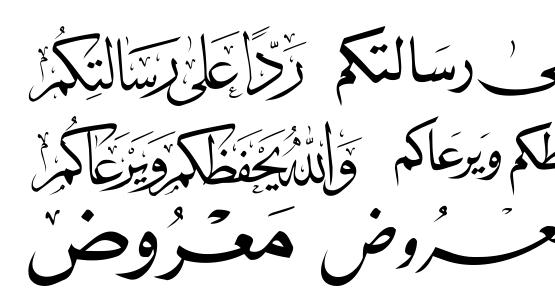 رسالتكم رَدًّا عَلىٰ رَسَالتِكُمْ
ويَرعَاكم وَاللهُ يَحْفَظُكُم وَيَرْعَاكُمْ
معروض مَعْرُوض